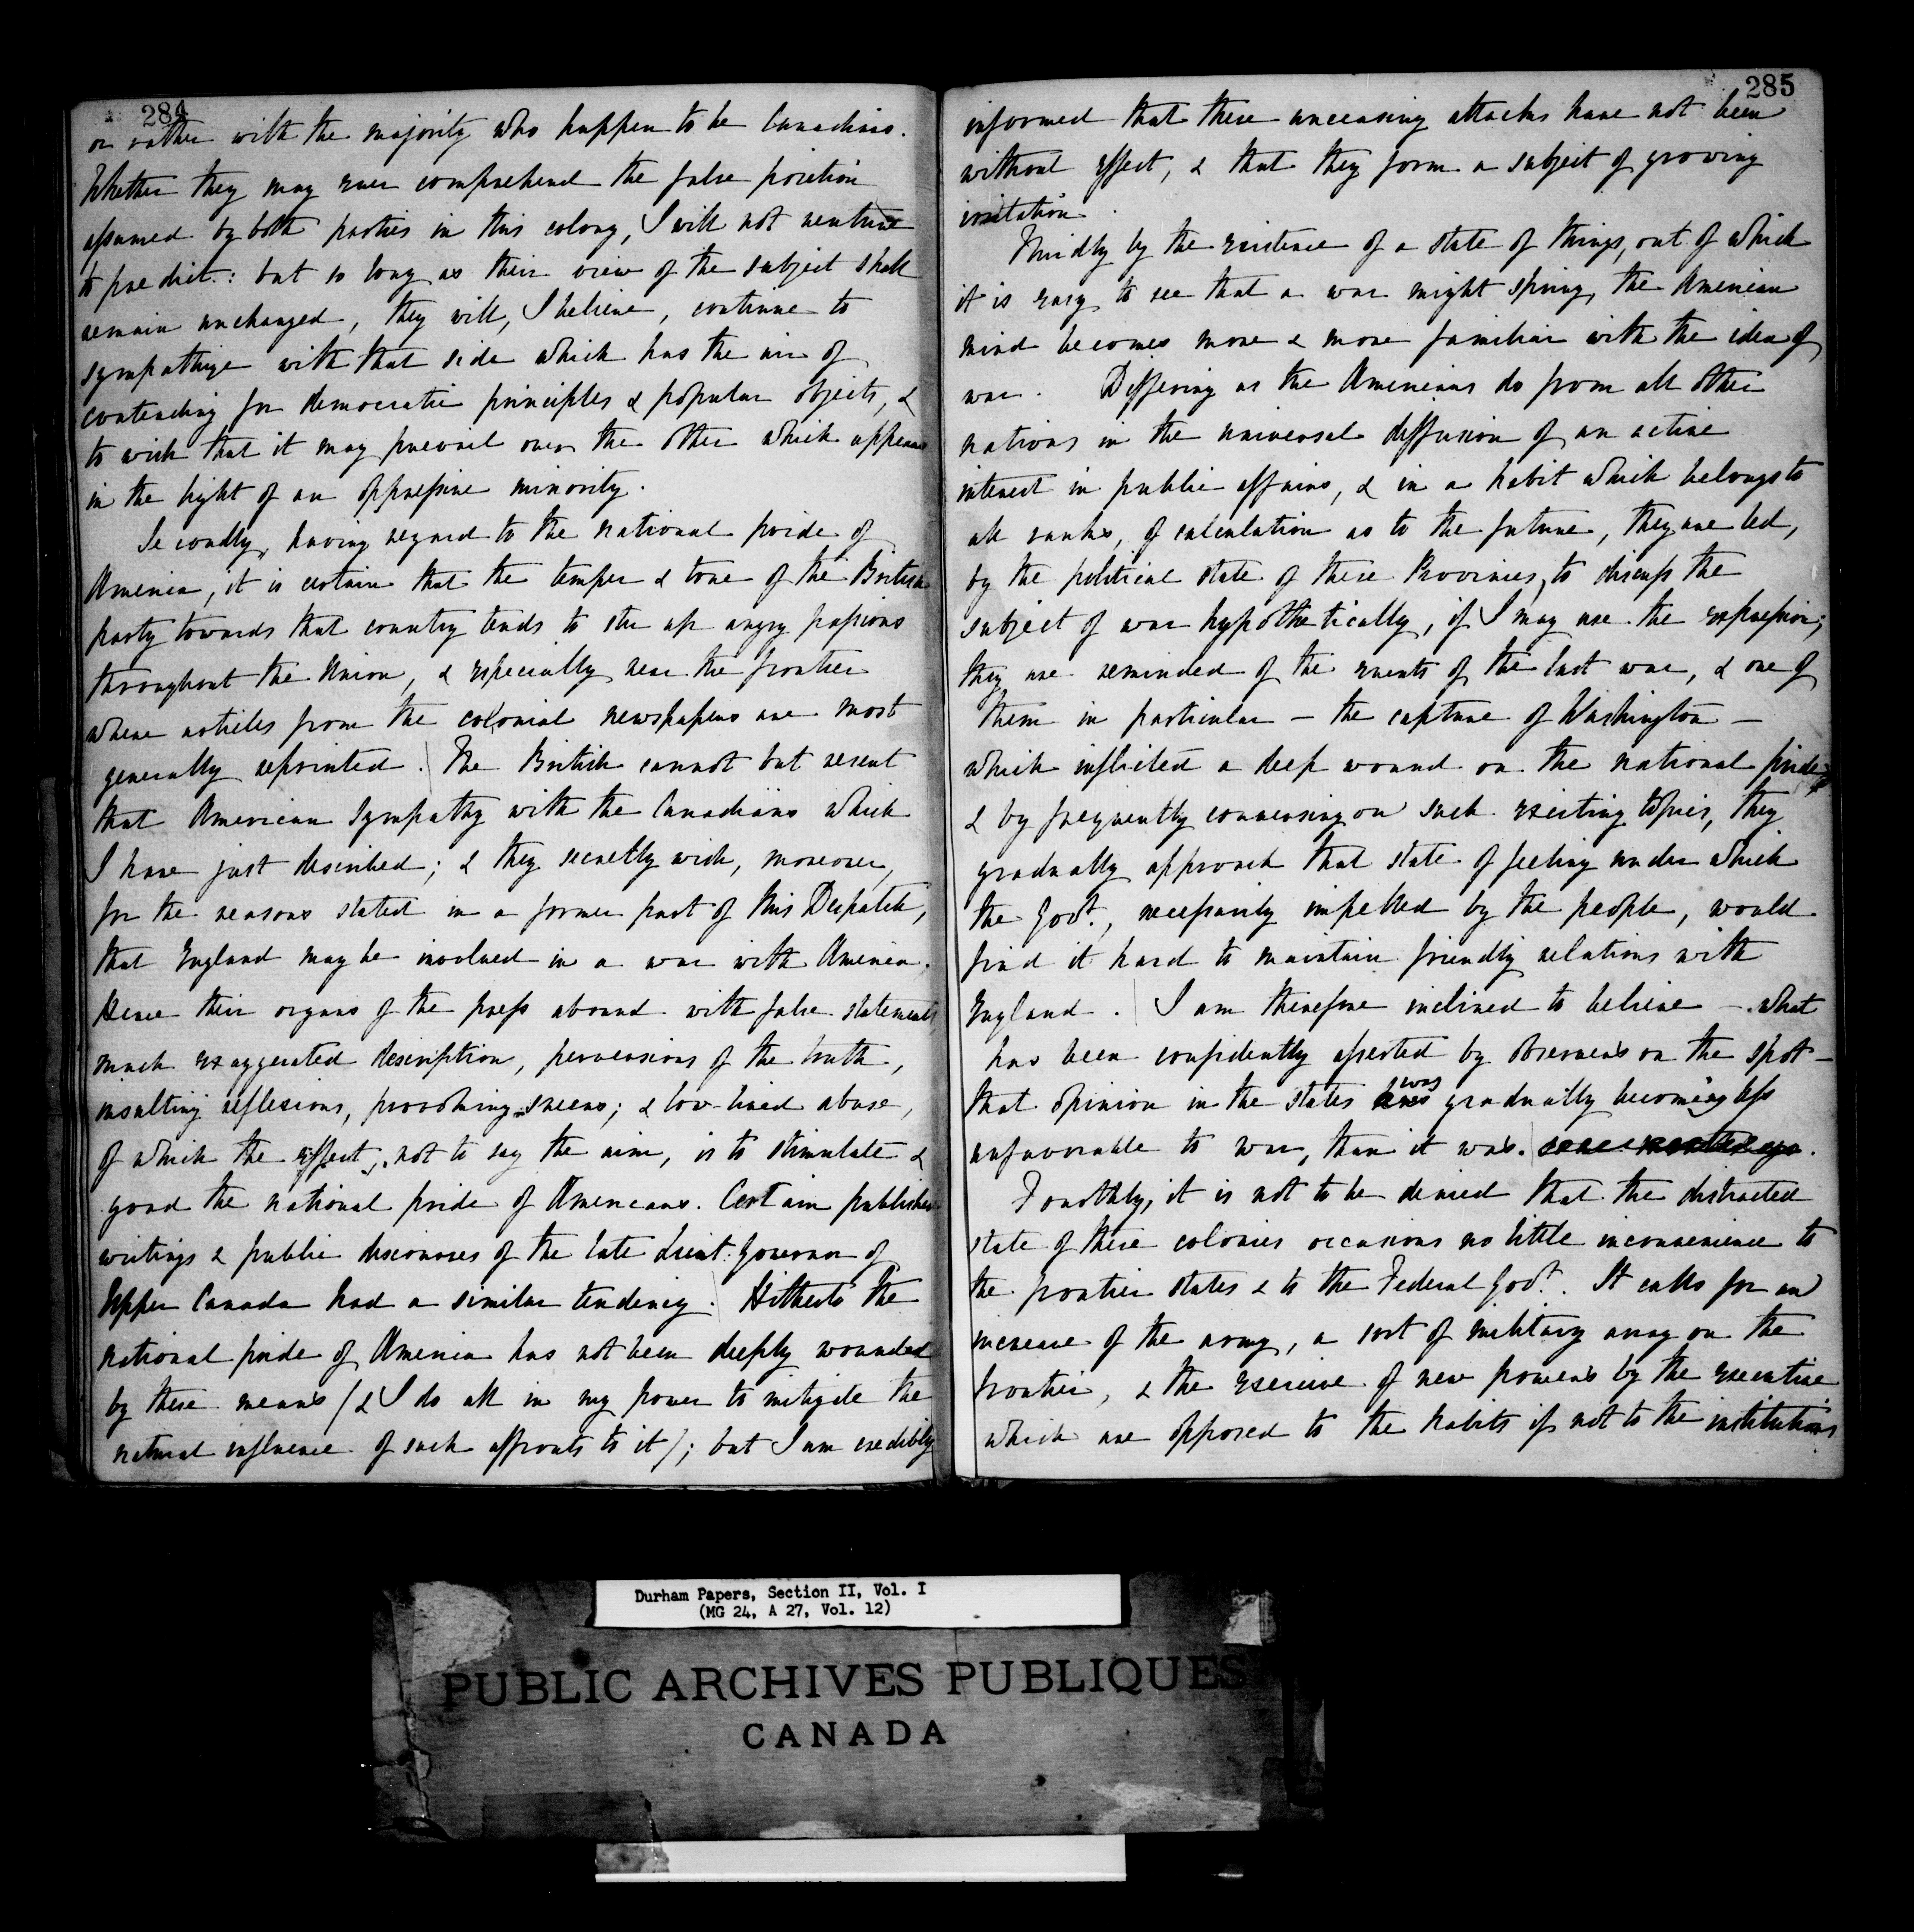 284
or rather with the majority who happen to be Canadians.
Whether they may ever comprehend the false position
assumed by both parties in this colony, I will not venture
to predict: but so long as their view of the subject shall
remain unchanged, they will, I believe, continue to
sympathize with that side which has the air of
contending for democratic principles & popular objects, &
to wish that it may prevail over the other which appears
in the light of an oppressive minority.
Secondly, having regard to the national pride of
America, it is certain that the temper & tone of the British
party towards that country tends to stir up angry passions
throughout the Union, & especially near the frontier
where articles from the colonial newspapers are most
generally reprinted. The British cannot but resent
that American sympathy with the Canadians which
I have just described; & they secretly wish, moreover,
for the reasons stated in a former part of this Despatch,
that England may be involved in a war with America.
Hence their organs of the press abound with false statements
much exaggerated description, perversions of the truth,
insulting reflexions, provoking sneers; & low-lived abuse,
of which the effect, not to say the aim, is to stimulate &
goad the national pride of Americans. Certain published
writings & public discourses of the late Lieut: Governor of
Upper Canada had a similar tendency. Hitherto the
national pride of America has not been deeply wounded
by these means (& I do all in my power to mitigate the
natural influence of such affronts to it); but I am credibly
285
informed that these unceasing attacks have not been
without effect, & that they form a subject of growing
irritation.
Thirdly by the existence of a state of things, out of which
it is easy to see that a war might spring, the American
mind becomes more & more familiar with the idea of
war. Differing as the Americans do from all other
nations in the universal diffusion of an active
interest in public affairs, & in a habit which belongs to
all ranks, of calculation as to the future, they are led,
by the political state of these Provinces, to discuss the
subject of war hypothetically, if I may use the expression;
they are reminded of the events of the last war, & one of
them in particular — the capture of Washington —
which inflicted a deep wound on the national pride;
& by frequently conversing on such exciting topics, they
gradually approach that state of feeling under which
the Govt., necessarily impelled by the people, would
find it hard to maintain friendly relations with
England. I am therefore inclined to believe — what
has been confidently asserted by observers on the spot —
that opinion in the states was gradually becoming less
unfavorable to war, than it was. some months ago.
Fourthly, it is not to be denied that the distracted
state of these colonies occasions no little inconvenience to
the frontier states & to the Federal Govt. It calls for an
increase of the army, a sort of military array on the
frontier, & the exercise of new powers by the executive
which are opposed to the habits if not to the institutions
Durham Papers, Section II, Vol. I
(MG 24, A 27, Vol. 12)
PUBLIC ARCHIVES PUBLIQUES
CANADA